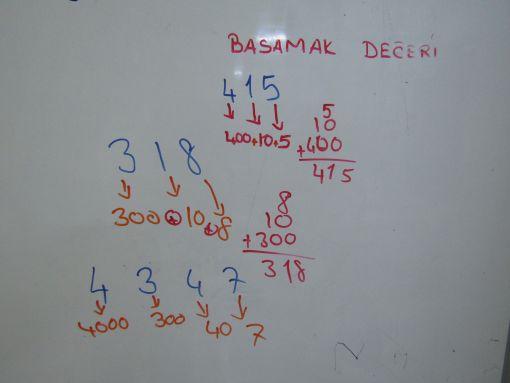 BASAMAK DEĞERİ
415
400+10+5
5
10
+400
415
318
300+10+8
8
10
+300
318
4 3 4 7
4000 300 40 7